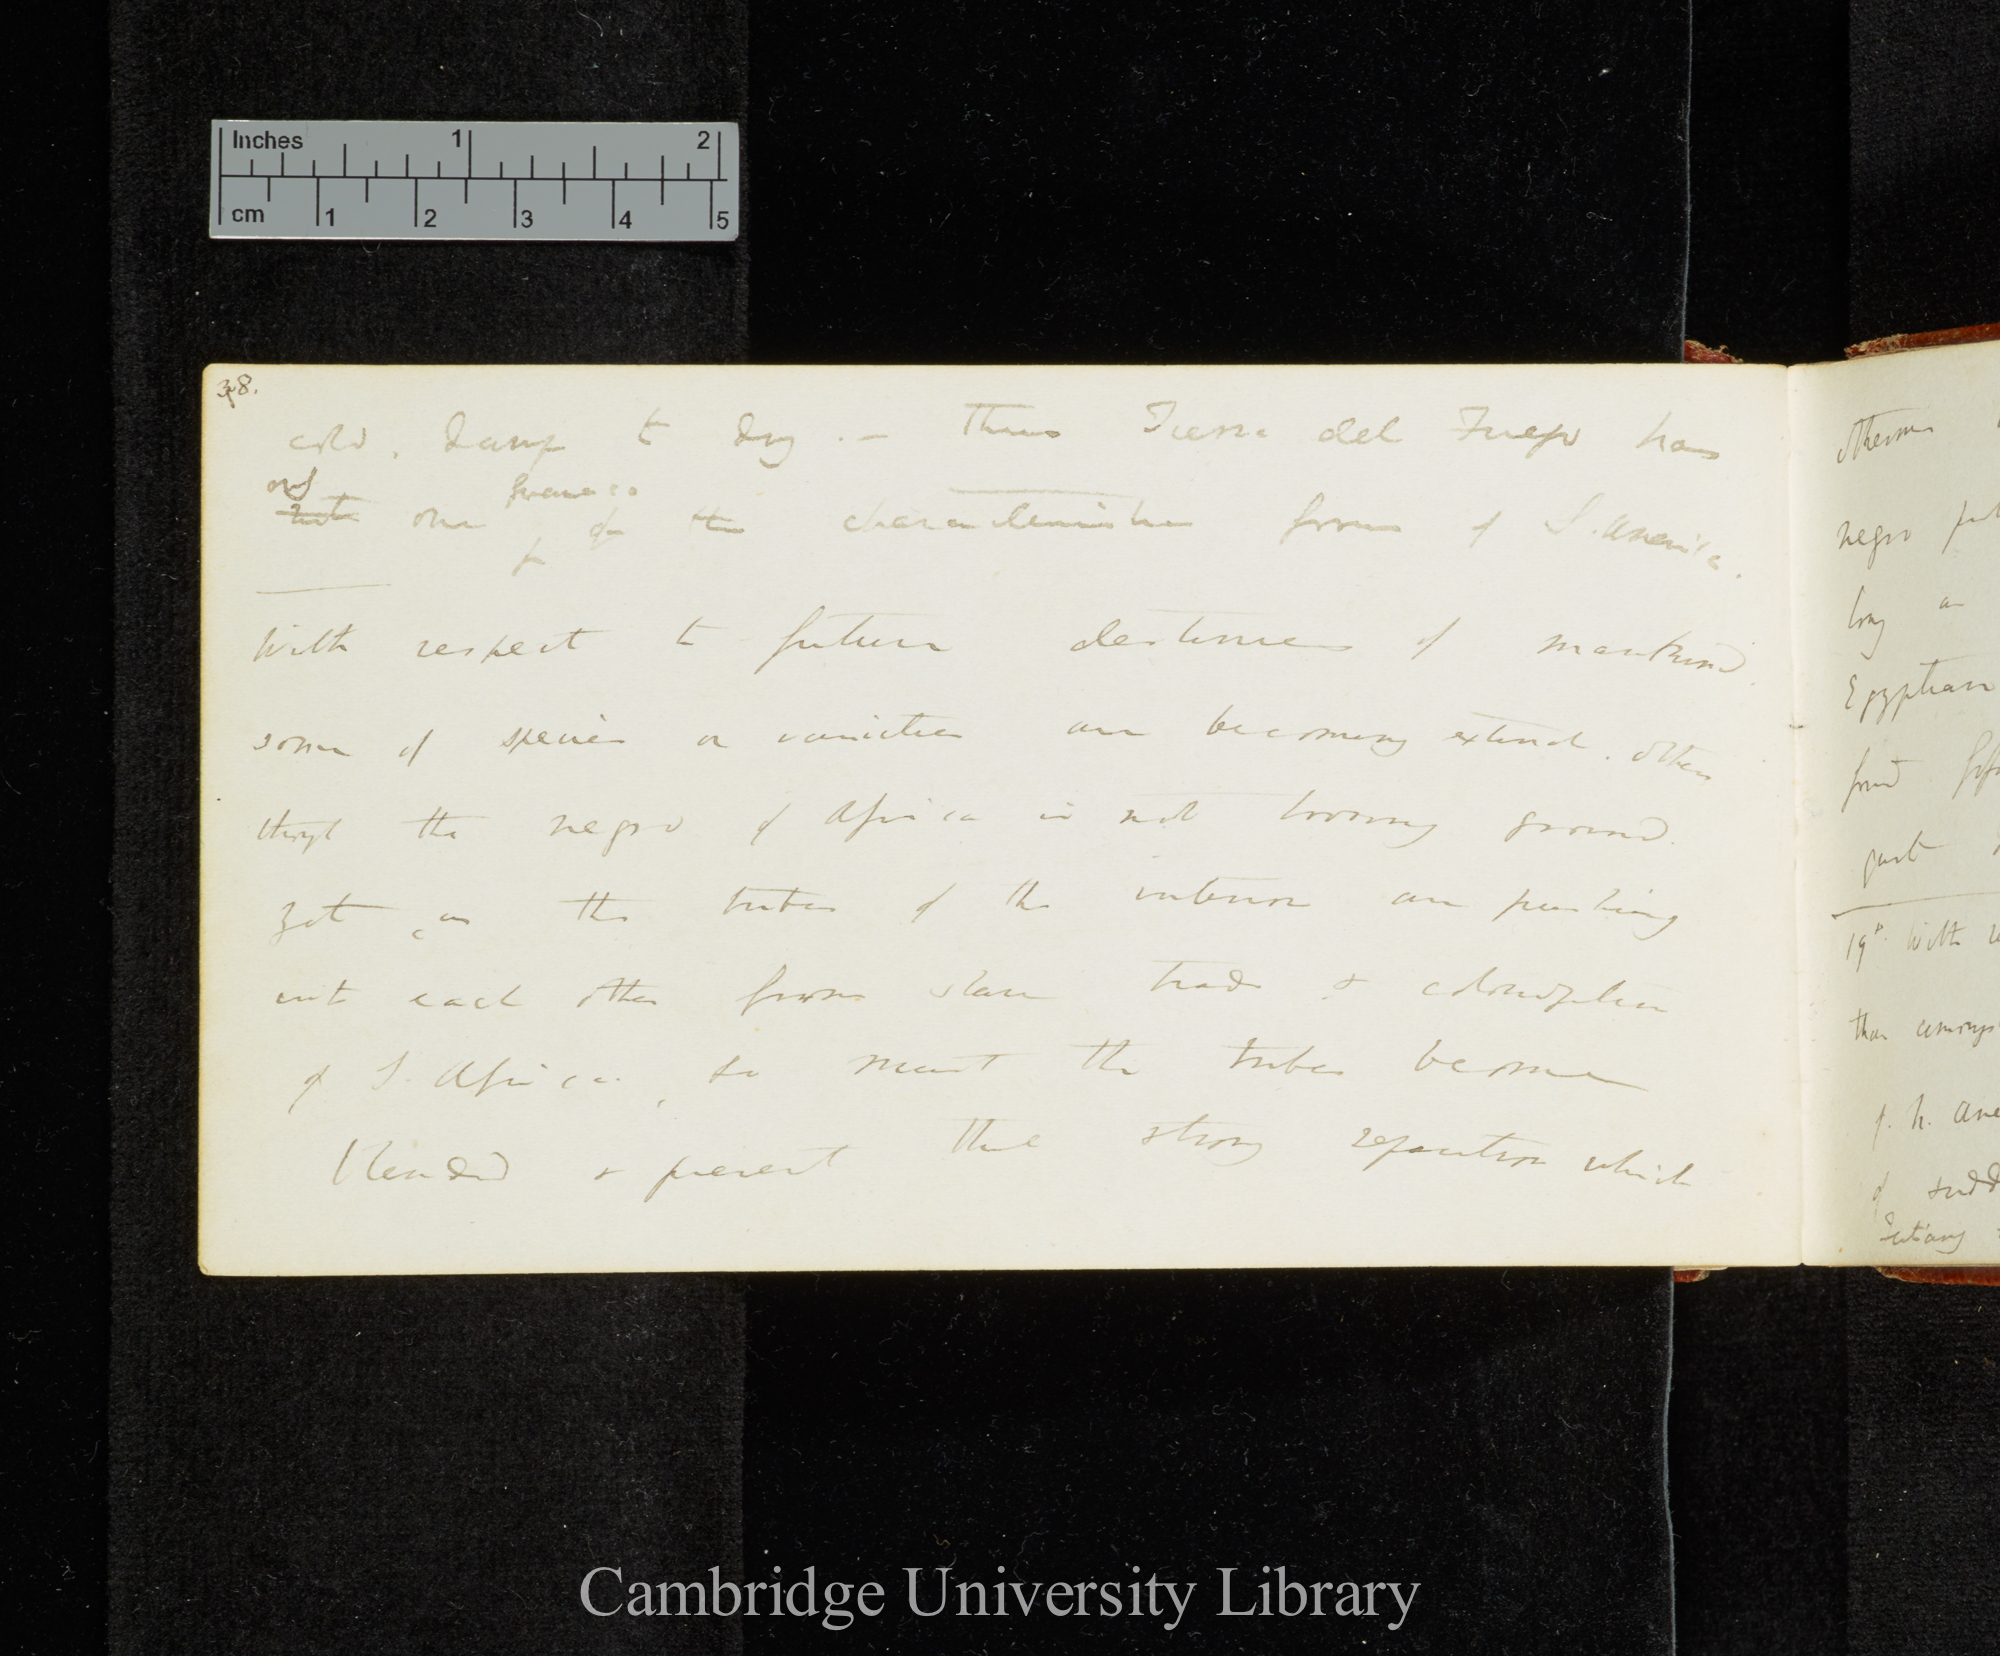 Inches 1 2
cm 1 2 3 4 5
38.
cold, damp to dry .— Thus Tierra del Fuego has
only guanaco
but one of the characteristic forms of S. America.
With respect to future destinies of mankind.
some of species or varieties are becoming extinct. others
though the negro of Africa is not loosing ground.
yet as the tribes of the interior are pushing
into each other from slave trade & colonization
of S. Africa, so must the tribes become
blended & prevent that strong separation which
otherwise
negro
long as
Egyptian
found
past
19th. With
than amongst
of
of
Tertiary
Cambridge University Library